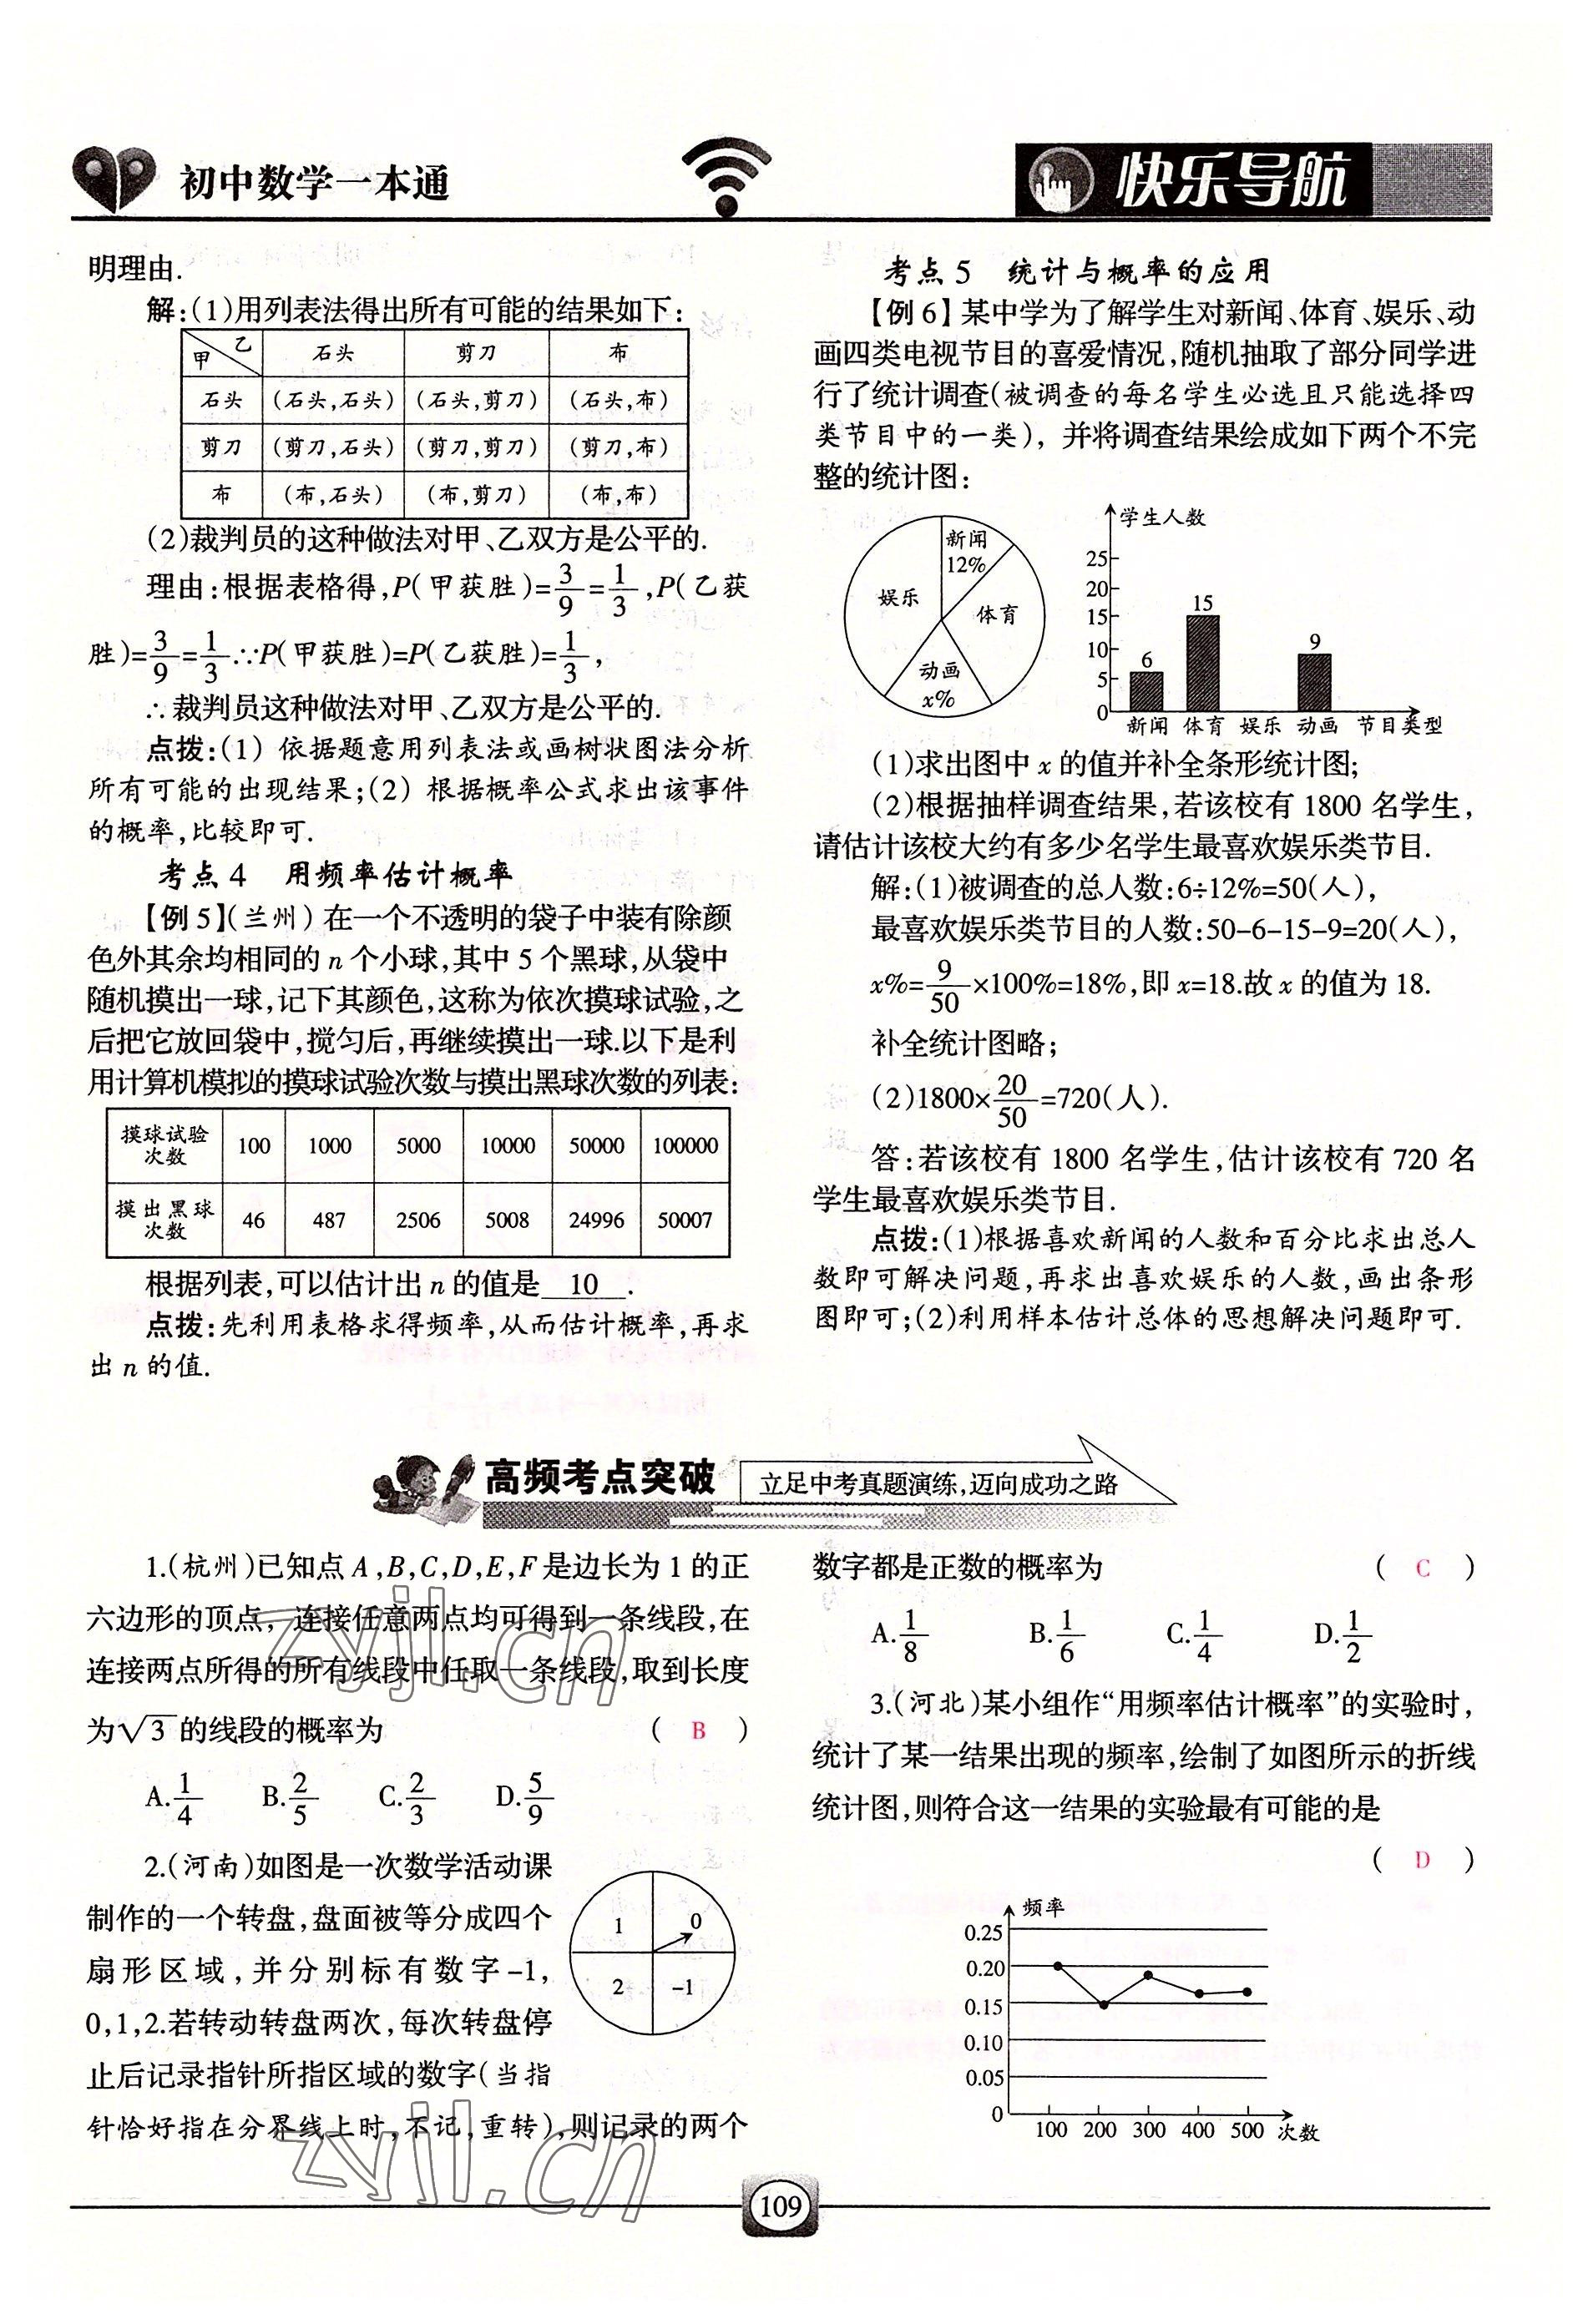 初中数学一本通
快乐导航
明理由.
解:(1)用列表法得出所有可能的结果如下:
甲 乙 石头 剪刀 布
石头 (石头,石头) (石头,剪刀) (石头,布)
剪刀 (剪刀,石头) (剪刀,剪刀) (剪刀,布)
布 (布,石头) (布,剪刀) (布,布)
(2)裁判员的这种做法对甲、乙双方是公平的.
理由:根据表格得,P(甲获胜)=3/9=1/3,P(乙获
胜)=3/9=1/3∵P(甲获胜)=P(乙获胜)=1/3,
∴裁判员这种做法对甲、乙双方是公平的.
点拨:(1) 依据题意用列表法或画树状图法分析
所有可能的出现结果;(2) 根据概率公式求出该事件
的概率,比较即可.
考点 4 用频率估计概率
【例 5】(兰州) 在一个不透明的袋子中装有除颜
色外其余均相同的 n 个小球,其中 5 个黑球,从袋中
随机摸出一球,记下其颜色,这称为依次摸球试验,之
后把它放回袋中,搅匀后,再继续摸出一球.以下是利
用计算机模拟的摸球试验次数与摸出黑球次数的列表:
摸球试验次数 100 1000 5000 10000 50000 100000
摸出黑球次数 46 487 2506 5008 24996 50007
根据列表,可以估计出 n 的值是 10 .
点拨:先利用表格求得频率,从而估计概率,再求
出 n 的值.
考点 5 统计与概率的应用
【例 6】某中学为了解学生对新闻、体育、娱乐、动
画四类电视节目的喜爱情况,随机抽取了部分同学进
行了统计调查(被调查的每名学生必选且只能选择四
类节目中的一类), 并将调查结果绘成如下两个不完
整的统计图:
新闻
12%
体育
娱乐
动画
x%
学生人数
25
20
15
10
5
0
6
15
9
新闻 体育 娱乐 动画 节目类型
(1)求出图中 x 的值并补全条形统计图;
(2)根据抽样调查结果,若该校有 1800 名学生,
请估计该校大约有多少名学生最喜欢娱乐类节目.
解:(1)被调查的总人数:6÷12%=50(人),
最喜欢娱乐类节目的人数:50-6-15-9=20(人),
x%=9/50×100%=18%,即 x=18.故 x 的值为 18.
补全统计图略;
(2)1800×20/50=720(人).
答:若该校有 1800 名学生,估计该校有 720 名
学生最喜欢娱乐类节目.
点拨:(1)根据喜欢新闻的人数和百分比求出总人
数即可解决问题,再求出喜欢娱乐的人数,画出条形
图即可;(2)利用样本估计总体的思想解决问题即可.
高频考点突破
立足中考真题演练,迈向成功之路
1.(杭州)已知点 A,B,C,D,E,F 是边长为 1 的正
六边形的顶点, 连接任意两点均可得到一条线段,在
连接两点所得的所有线段中任取一条线段,取到长度
为√3 的线段的概率为 ( B )
A.1/4 B.2/5 C.2/3 D.5/9
2.(河南)如图是一次数学活动课
制作的一个转盘,盘面被等分成四个
扇形区域,并分别标有数字-1,
0,1,2.若转动转盘两次,每次转盘停
止后记录指针所指区域的数字(当指
针恰好指在分界线上时,不记,重转),则记录的两个
1 0
2 -1
数字都是正数的概率为 ( C )
A.1/8 B.1/6 C.1/4 D.1/2
3.(河北)某小组作“用频率估计概率”的实验时,
统计了某一结果出现的频率,绘制了如图所示的折线
统计图,则符合这一结果的实验最有可能的是
( D )
频率
0.25
0.20
0.15
0.10
0.05
0
100 200 300 400 500 次数
zyjl.cn
zyjl.cn
109